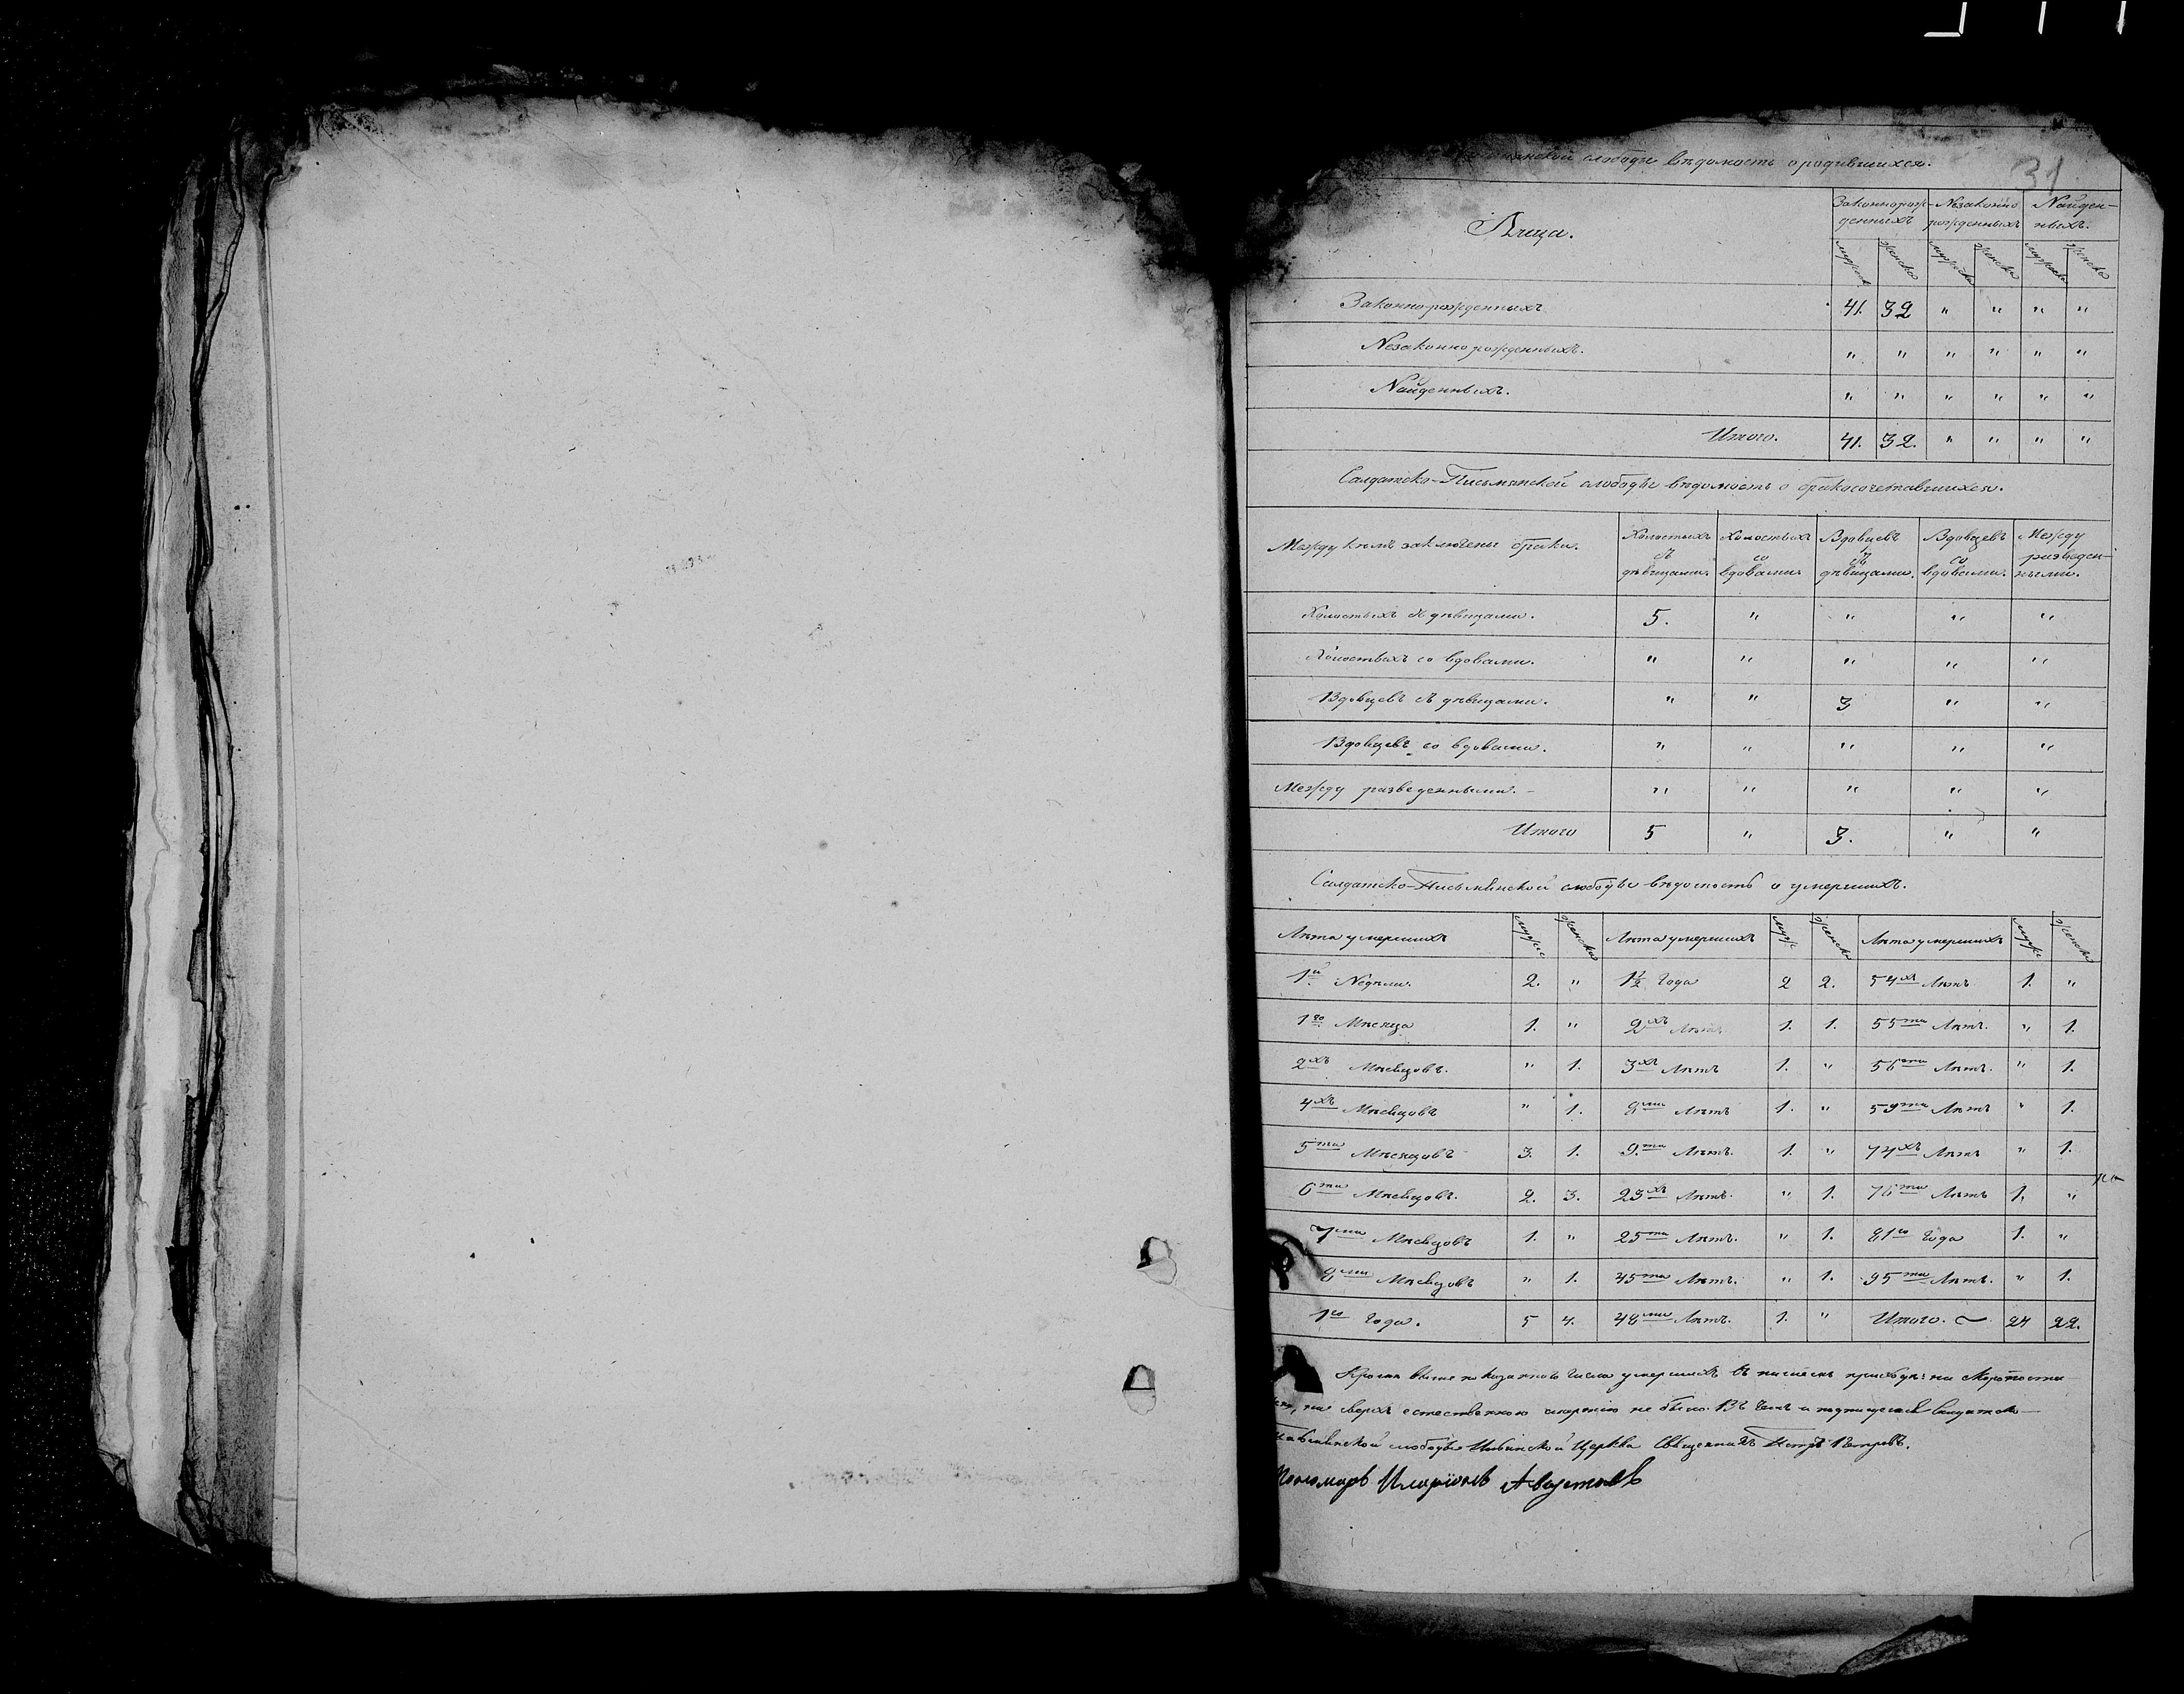 слободы вѣдомость о родившихся.
31
Лица. Законнорожденныхъ Незаконнорожденныхъ Найденныхъ.
мужеска женска мужеска женска мужеска женска
Законнорожденныхъ 41. 32 " " " "
Незаконнорожденныхъ. " " " " " "
Найденныхъ. " " " " " "
Итого. 41. 32. " " " "
Салдатско-Письмянской слободы вѣдомость о бракосочетавшихся.
Между кѣмъ заключены браки. Холостыхъ съ дѣвицами Холостыхъ со вдовами Вдовцевъ съ дѣвицами. Вдовцевъ со вдовами. Между разведенными.
Холостыхъ съ дѣвицами. 5. " " " "
Холостыхъ со вдовами. " " " " "
Вдовцевъ съ дѣвицами. " " 3 " "
Вдовцевъ со вдовами. " " " " "
Между разведенными. - " " " " "
Итого 5 " 3. " "
Салдатско-Письмянской слободы вѣдомость о умершихъ.
Лѣта умершихъ мужс женска Лѣта умершихъ мужс женска Лѣта умершихъ мужс женска
1й Недѣли. 2. " 1½ Года 2 2. 54хъ Лѣтъ 1. "
1го Мѣсяца 1. " 2хъ Лѣтъ 1. 1. 55ти Лѣтъ. " 1.
2хъ Мѣсяцовъ. " 1. 3хъ Лѣтъ 1. " 56ти Лѣтъ. " 1.
4хъ Мѣсяцовъ " 1. 8ми Лѣтъ 1. " 59ти Лѣтъ " 1.
5ти Мѣсяцовъ 3. 1. 9.ти Лѣтъ. 1. " 74хъ Лѣтъ " 1.
6ти Мѣсяцовъ. 2. 3. 23хъ Лѣтъ. " 1. 76ти Лѣтъ 1. "
7ми Мѣсяцовъ 1. " 25ти Лѣтъ. " 1. 81го Года 1. "
8ми Мѣсяцовъ " 1. 45ти Лѣтъ. " 1. 95ти Лѣтъ. " 1.
1го Года. 5 4. 48ми Лѣтъ. 1. " Итого. 24 22.
Кромѣ выше показаннаго числа умершихъ въ нашемъ приходѣ: ни
сверхъ естественною смертію не было. Въ чемъ и подписуемся Салдатско-
слободы Церкви Священникъ Петръ Петровъ.
Пономарь Иларіонъ